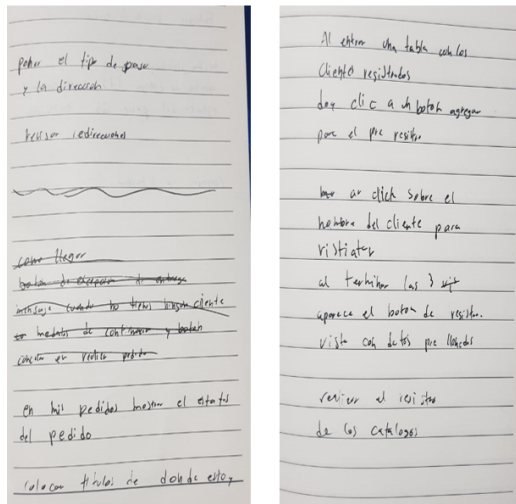 poner el tipo de pago
y la direccion
revisar redirecciones
como llegar
boton de de entrega
mensaje cuando no tienes ningun cliente
y boton
pedido
en mis pedidos mostrar el estatus
del pedido
colocar titulos de donde estoy
Al entrar una tabla con los
clientes registrados
doy clic a un boton agregar
para el pre registro
click sobre el
nombre del cliente para
al terminar las 3
aparece el boton de registro.
vista con datos pre llenados
revisar el registro
de los catalogos